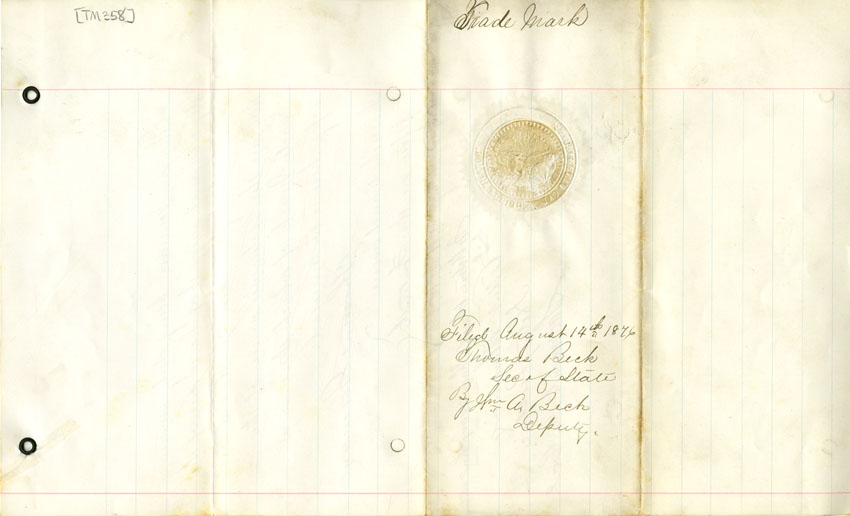 [TM358]
Trade Mark
Filed August 14th 1876
Thomas Beck
Sec of State
By Wm A. Beck
Deputy.